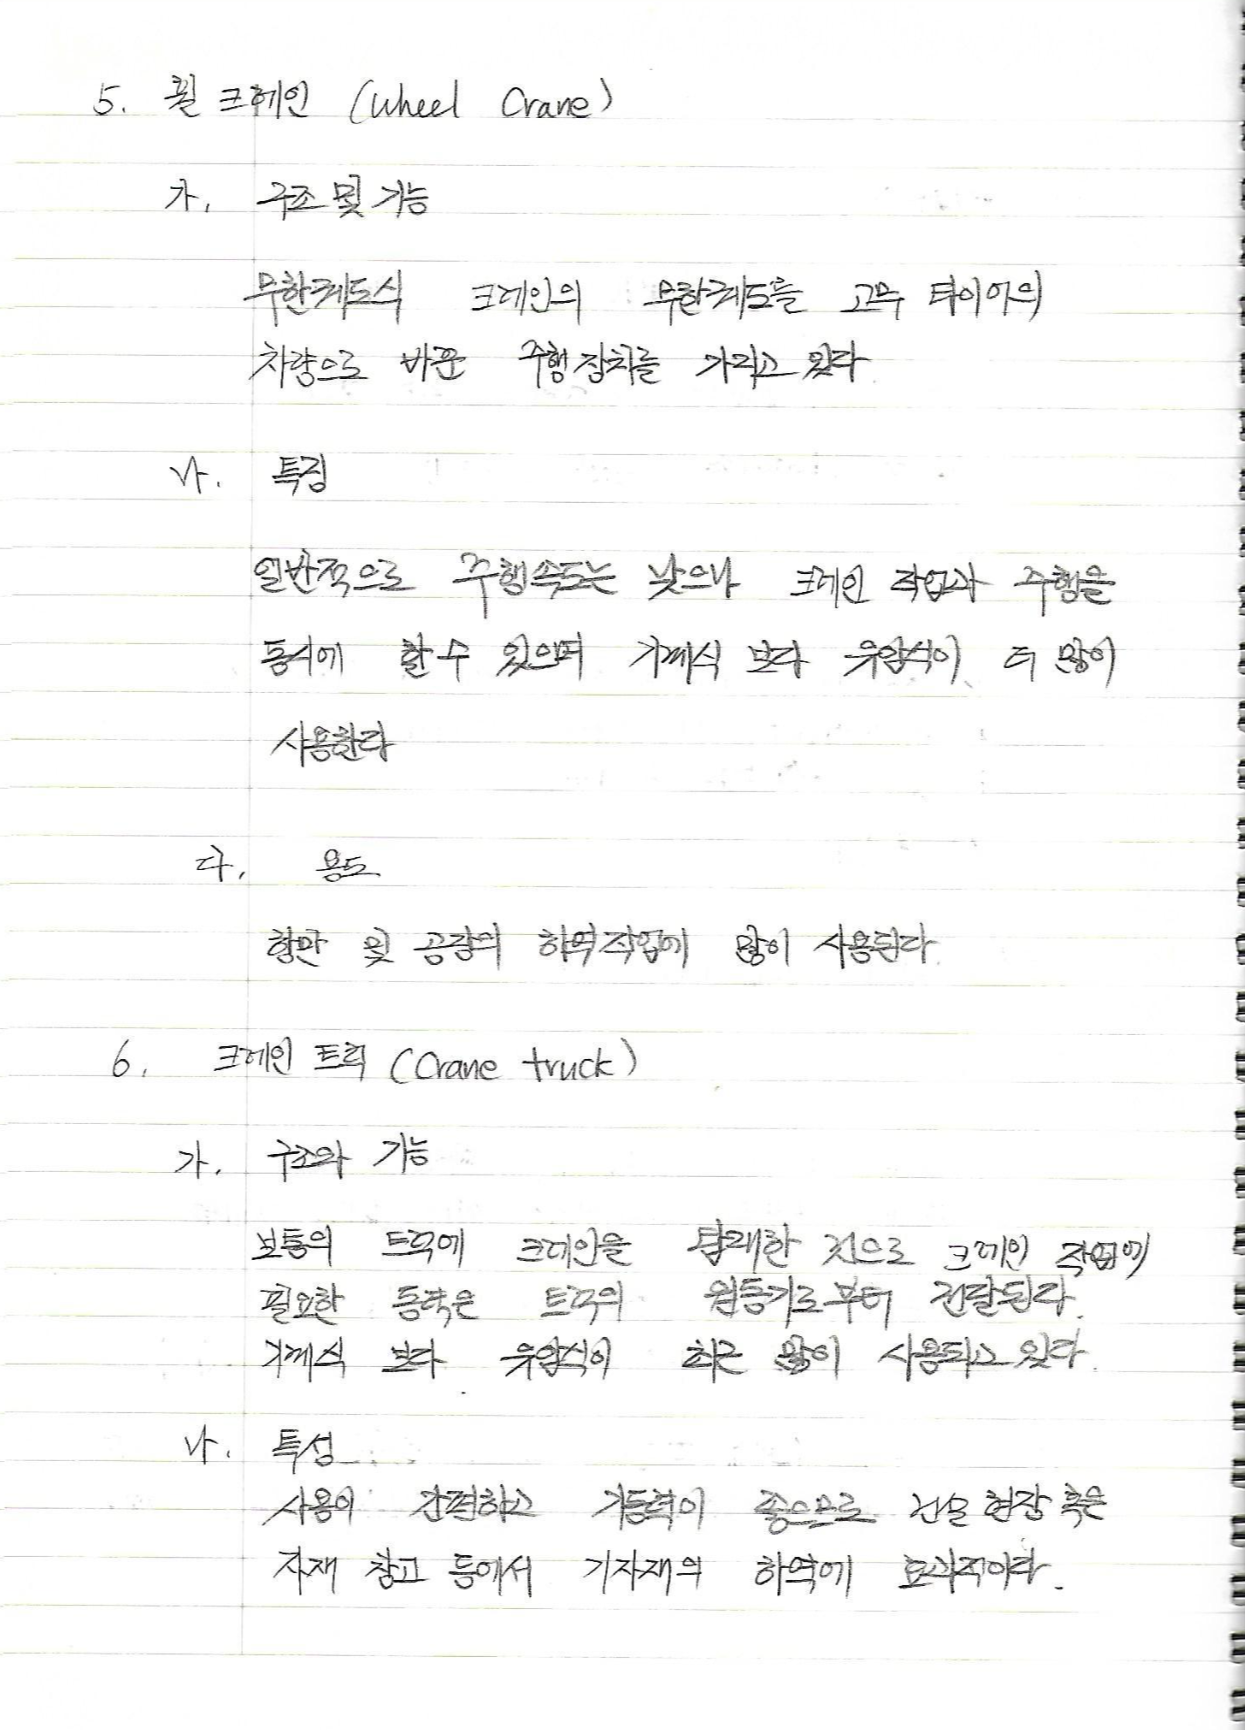 5. 휠 크레인 (Wheel Crane)
가. 구조 및 기능
무한궤도식 크레인의 무한궤도를 고무 타이어의
차량으로 바꾼 주행장치를 가지고 있다
나. 특징
일반적으로 주행속도는 낮으나 크레인 작업과 주행을
동시에 할 수 있으며 기계식 보다 유압식이 더 많이
사용한다
다. 용도
항만 및 공장의 하역작업에 많이 사용된다.
6. 크레인 트럭 (Crane truck)
가. 구조와 기능
보통의 트럭에 크레인을 탑재한 것으로 크레인 작업에
필요한 동력은 트럭의 원동기로부터 전달된다.
기계식 보다 유압식이 최근 많이 사용되고 있다.
나. 특성
사용이 간편하고 기동력이 좋으므로 건설 현장 혹은
자재 창고 등에서 기자재의 하역에 효과적이다.